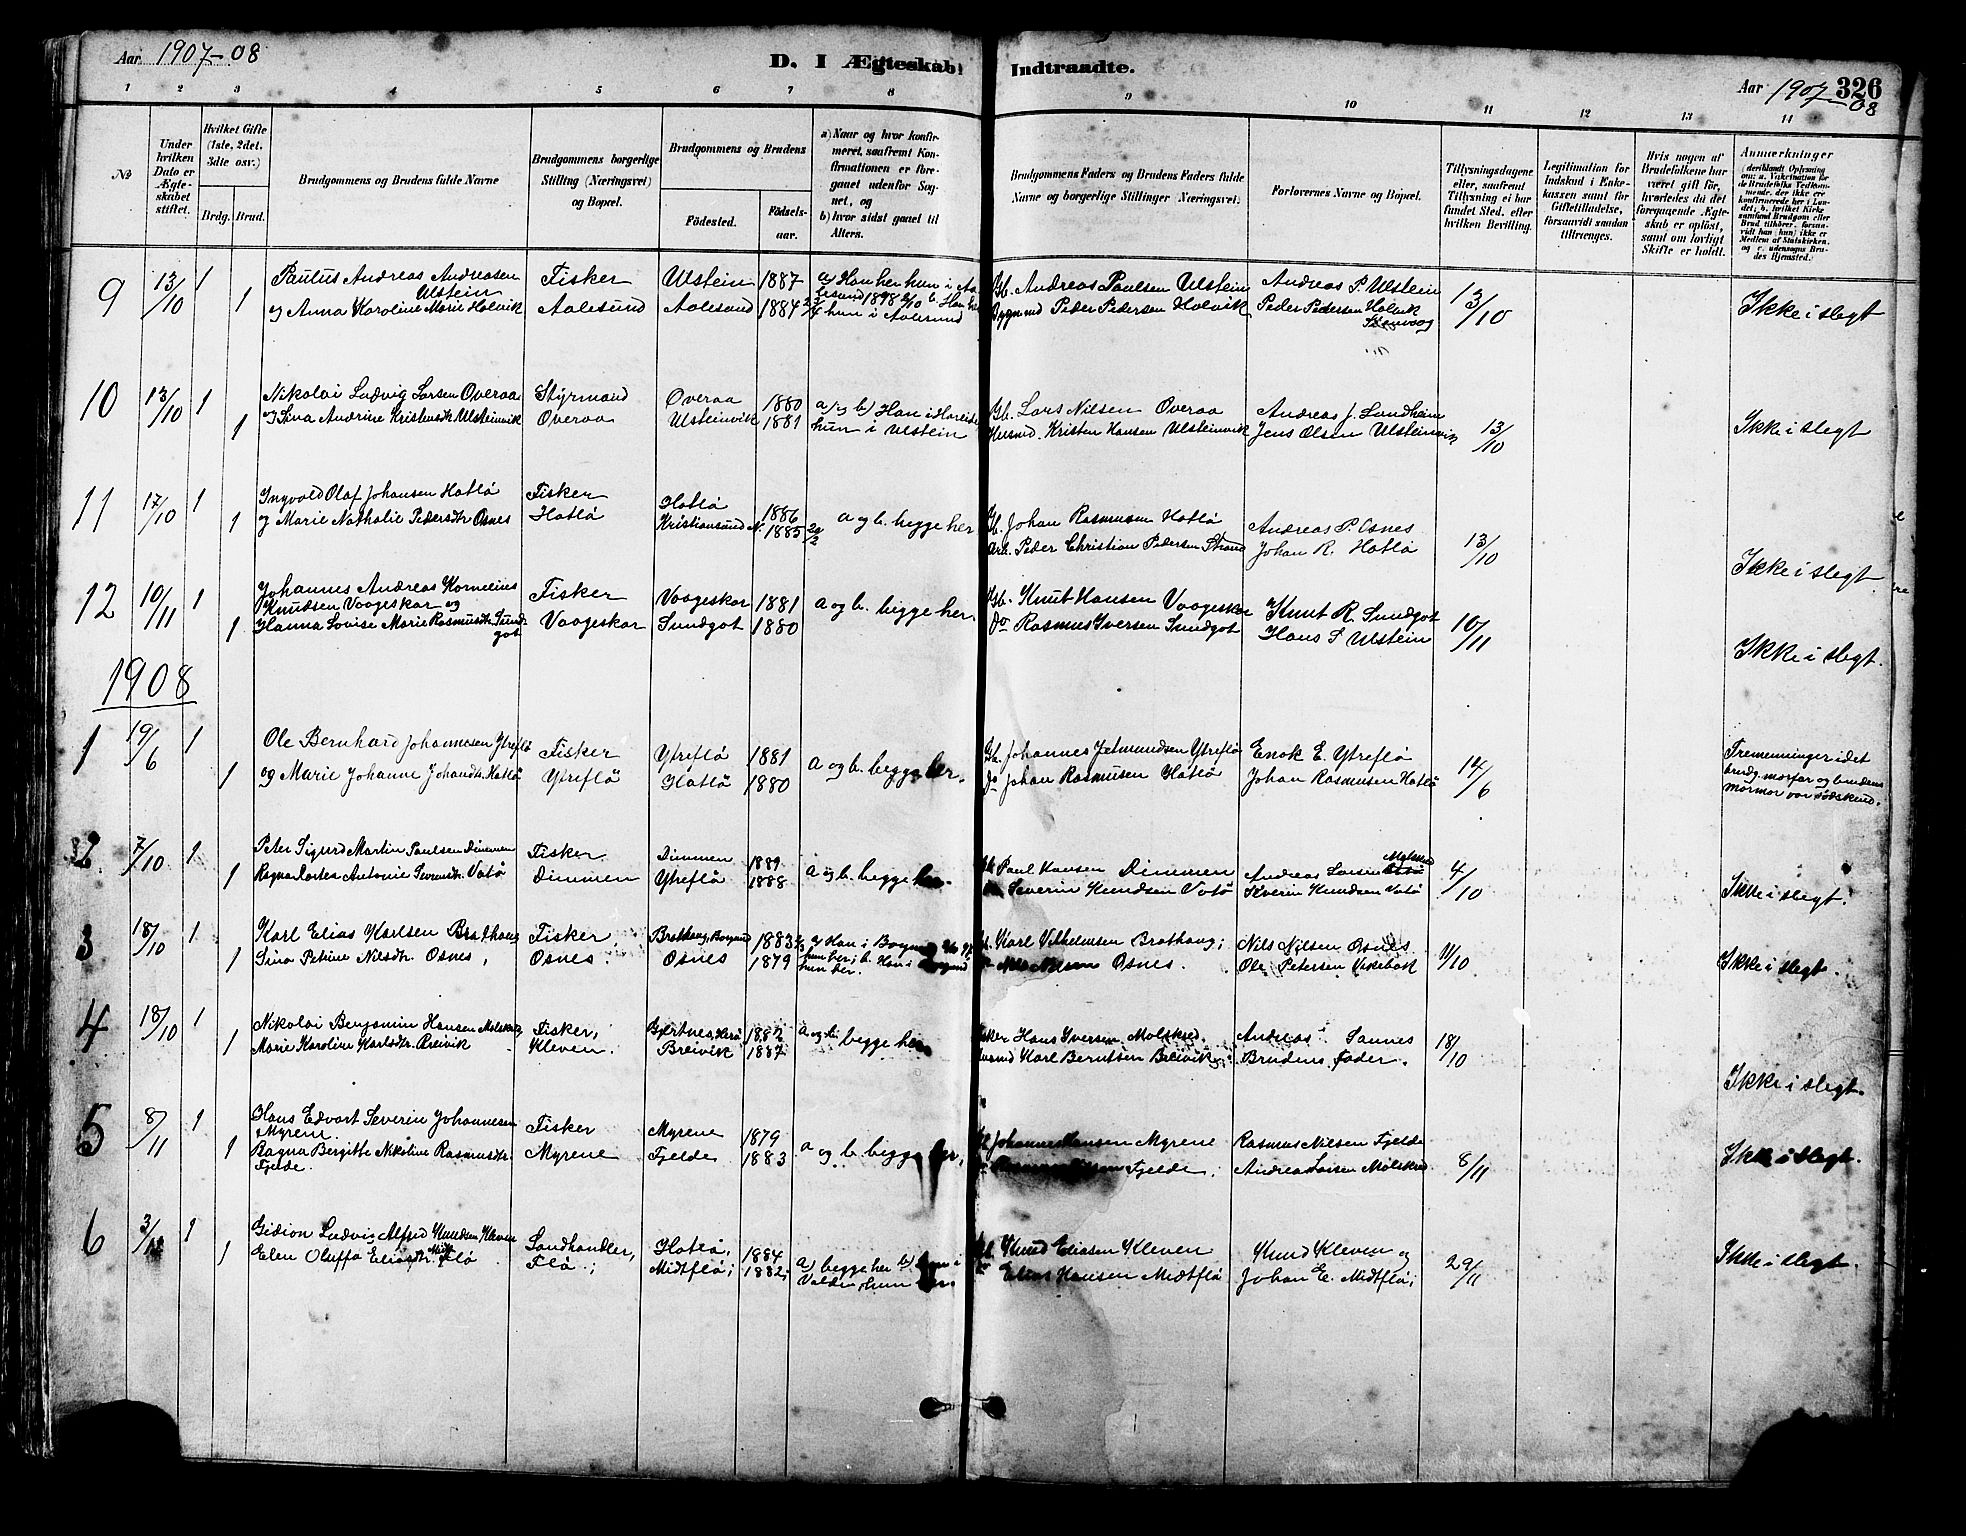 Aar 1907-08
D. I Ægteskab Indtraadte.
Aar 1907-08
326
1 2 3 4 5 6 7 8 9 10 11 12 13 14
No
Under hvilken Dato er Ægteskabet stiftet.
Hvilket Gifte (1ste, 2det, 3dte osv.)
Brdg. Brud.
Brudgommens og Brudens fulde Navne
Brudgommens borgerlige Stilling (Næringsvei) og Bopæl.
Brudgommens og Brudens
Fødested.
Fødselsaar.
a) Naar og hvor konfirmeret, saafremt Konfirmationen er foregaaet udenfor Sognet, og
b) hvor sidst gaaet til Alters.
Brudgommens Faders og Brudens Faders fulde Navne og borgerlige Stillinger (Næringsvei).
Forlovernes Navne og Bopæl.
Tillysningsdagene eller, saafremt Tillysning ei har fundet Sted, efter hvilken Bevilling.
Legitimation for Indskud i Enkekassen samt for Giftetilladelse, forsaavidt saadan tiltrænges.
Hvis nogen af Brudefolkene har været gift før, hvorledes da det foregaaende Ægteskab er opløst, samt om lovligt Skifte er holdt.
Anmærkninger
9 13/10 1 Paulus Andreas Andreasen Ulstein Fisker Ulstein 1887 Gb. Andreas Paulsen Ulstein Andreas P. Ulstein 13/10
1 og Anna Karoline Marie Holvik Aalesund Aalesund 1884 hun i Aalesund Peder Pedersen Holvik Peder Pedersen Holvik Ikke i slegt
10 13/10 1 Nikolai Ludvig Larsen Overaa Styrmand Overaa 1880 a) og b) Han i Hareide Gb. Lars Nilsen Overaa Andreas J. Sundheim 13/10
1 og Sina Andrine Kristensdtr Ulsteinvik Overaa Ulsteinvik 1881 hun i Ulstein Husmd. Kristen Hansen Ulsteinvik Jens Olsen Ulsteinvik Ikke i slegt
11 17/10 1 Ingvald Olaf Johansen Hatlø Fisker Hatlø 1886 a og b. begge her Gb. Johan Rasmusen Hatlø Andreas P. Osnes 13/10
1 og Marie Nathalie Pedersdtr Osnes Hatlø Kristiansund N. 1885 Arb. Peder Christian Pedersen Strand Johan R. Hatlø Ikke i slegt
12 10/11 1 Johannes Andreas Kornelius Knudsen Vaageskar og Fisker Vaageskar 1881 a og b. begge her. Gb. Knut Hansen Vaageskar Knut R. Sundgot 10/11
1 Hanna Lovise Marie Rasmusdtr. Sundgot Vaageskar Sundgot 1880 Do Rasmus Iversen Sundgot Hans S. Ulstein Ikke i slegt.
1908
1 19/6 1 Ole Bernhard Johannesen Ytreflø Fisker Ytreflø 1881 a og b. begge her. Gb. Johannes Jetmundsen Ytreflø Enok E. Ytreflø 14/6
1 og Marie Johanne Johandtr. Hatlø Ytreflø Hatlø 1880 Do Johan Rasmusen Hatlø Johan Rasmusen Hatlø Tremenninger idet brudg. morfar og brudens mormor var sødskend.
2 7/10 1 Peter Sigurd Martin Paulsen Dimmen Fisker Dimmen 1889 a og b. begge her. Paul Hansen Dimmen Andreas Larsen 4/10
1 Ragna Dortea Antonie Severindtr. Vatø Dimmen Ytreflø 1888 Severin Knudsen Vatø Severin Knudsen Vatø Ikke i slegt.
3 18/10 1 Karl Elias Karlsen Brathaug Fisker Brathaug, Borgund 1883 Karl Vilhelmsen Brathaug; Nils Nilsen Osnes. 11/10
1 Sina Petrine Nilsdtr. Osnes, Osnes. Osnes 1879 hun her. Nils Nilsen Osnes. Ole Petersen Vikebak Ikke i slegt.
4 18/10 1 Nikolai Benjamin Hansen Molskred Fisker, 1882 a og b. begge her Hans Iversen Molskred. Andreas Sannes 18/10
1 Marie Karoline Karlsdtr. Breivik Kleven. Breivik 1887 Karl Berntsen Breivik; Brudens fader. Ikke i slegt.
5 8/11 1 Hans Edvart Severin Johannesen Myrene Fisker Myrene 1879 a og b. begge her. Johannes Hansen Myrene Rasmus Nilsen Fjelde 8/11
1 Ragna Bergitte Nikoline Rasmusdtr. Fjelde. Myrene Fjelde 1883 Rasmus Nilsen Fjelde. Andreas Larsen Molskred Ikke i slegt.
6 3/12 1 Gidion Ludvig Alfred Knudsen Kleven Landhandler, Hatlø, 1884 a) begge her b) han i Knud Eliasen Kleven Knud Kleven og 29/11
1 Elen Oluffa Eliasdtr. Midtflø Flø; Midtflø; 1882; Volden, hun her. Elias Hansen Midtflø Johan E. Midtflø; Ikke i slegt.